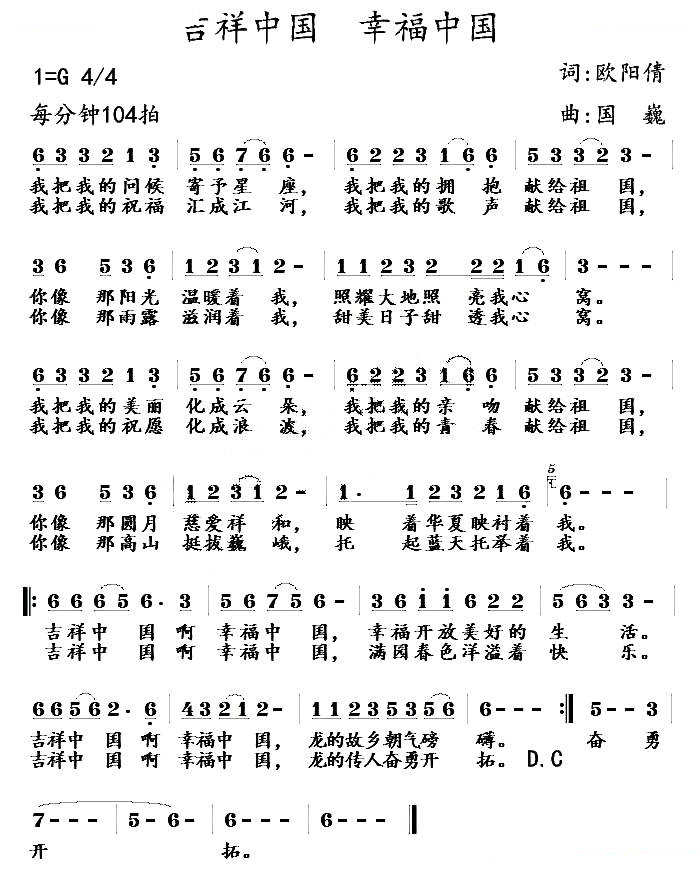 吉祥中国　幸福中国
1=G 4/4　词:欧阳倩
每分钟104拍　曲:国　巍
6 3 3 2 1 3 | 5 6 7 6 6 - | 6 2 2 3 1 6 6 | 5 3 3 2 3 - |
我把我的问候 寄予星 座, 我把我的拥 抱 献给祖 国,
我把我的祝福 汇成江 河, 我把我的歌 声 献给祖 国,
3 6 5 3 6 | 1 2 3 1 2 - | 1 1 2 3 2 2 2 1 6 | 3 - - - |
你像 那阳光 温暖着 我, 照耀大地照 亮我心 窝。
你像 那雨露 滋润着 我, 甜美日子甜 透我心 窝。
6 3 3 2 1 3 | 5 6 7 6 6 - | 6 2 2 3 1 6 6 | 5 3 3 2 3 - |
我把我的美丽 化成云 朵, 我把我的亲 吻 献给祖 国,
我把我的祝愿 化成浪 波, 我把我的青 春 献给祖 国,
3 6 5 3 6 | 1 2 3 1 2 - | 1· 1 2 3 2 1 6 | 5 6 - - - |
你像 那圆月 慈爱祥 和, 映 着华夏映衬着 我。
你像 那高山 挺拔巍 峨, 托 起蓝天托举着 我。
‖: 6 6 6 5 6· 3 | 5 6 7 5 6 - | 3 6 1 1 6 2 2 | 5 6 3 3 - |
吉祥中 国 啊 幸福中 国, 幸福开放美好的 生 活。
吉祥中 国 啊 幸福中 国, 满园春色洋溢着 快 乐。
6 6 5 6 2· 6 | 4 3 2 1 2 - | 3 2 3 5 5 3 5 6 | 6 - - - :‖ 5 - - 3 |
吉祥中 国 啊 幸福中 国, 龙的故乡朝气磅 礴。 奋 勇
吉祥中 国 啊 幸福中 国, 龙的传人奋勇开 拓。 D.C
7 - - - | 5 - 6 - | 6 - - - | 6 - - - ‖
开 拓。